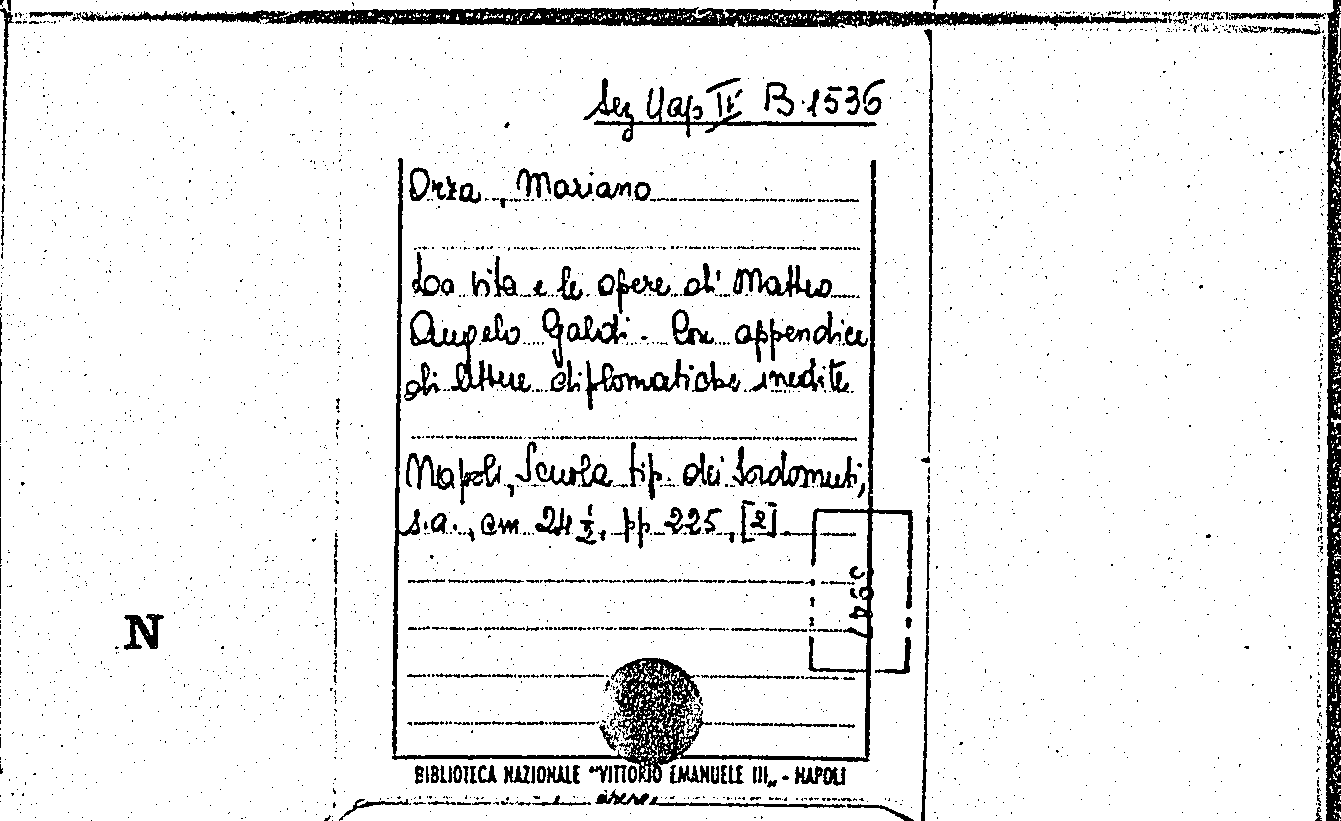 Sez Nap II B. 1536
Orza, Mariano
La vita e le opere di Matteo
Angelo Galdi. Con appendice
di lettere diplomatiche inedite
Napoli, Scuola tip. dei Sordomuti,
s.a., cm 24 ½, pp 225, [2].
N
BIBLIOTECA NAZIONALE "VITTORIO EMANUELE III„ - NAPOLI